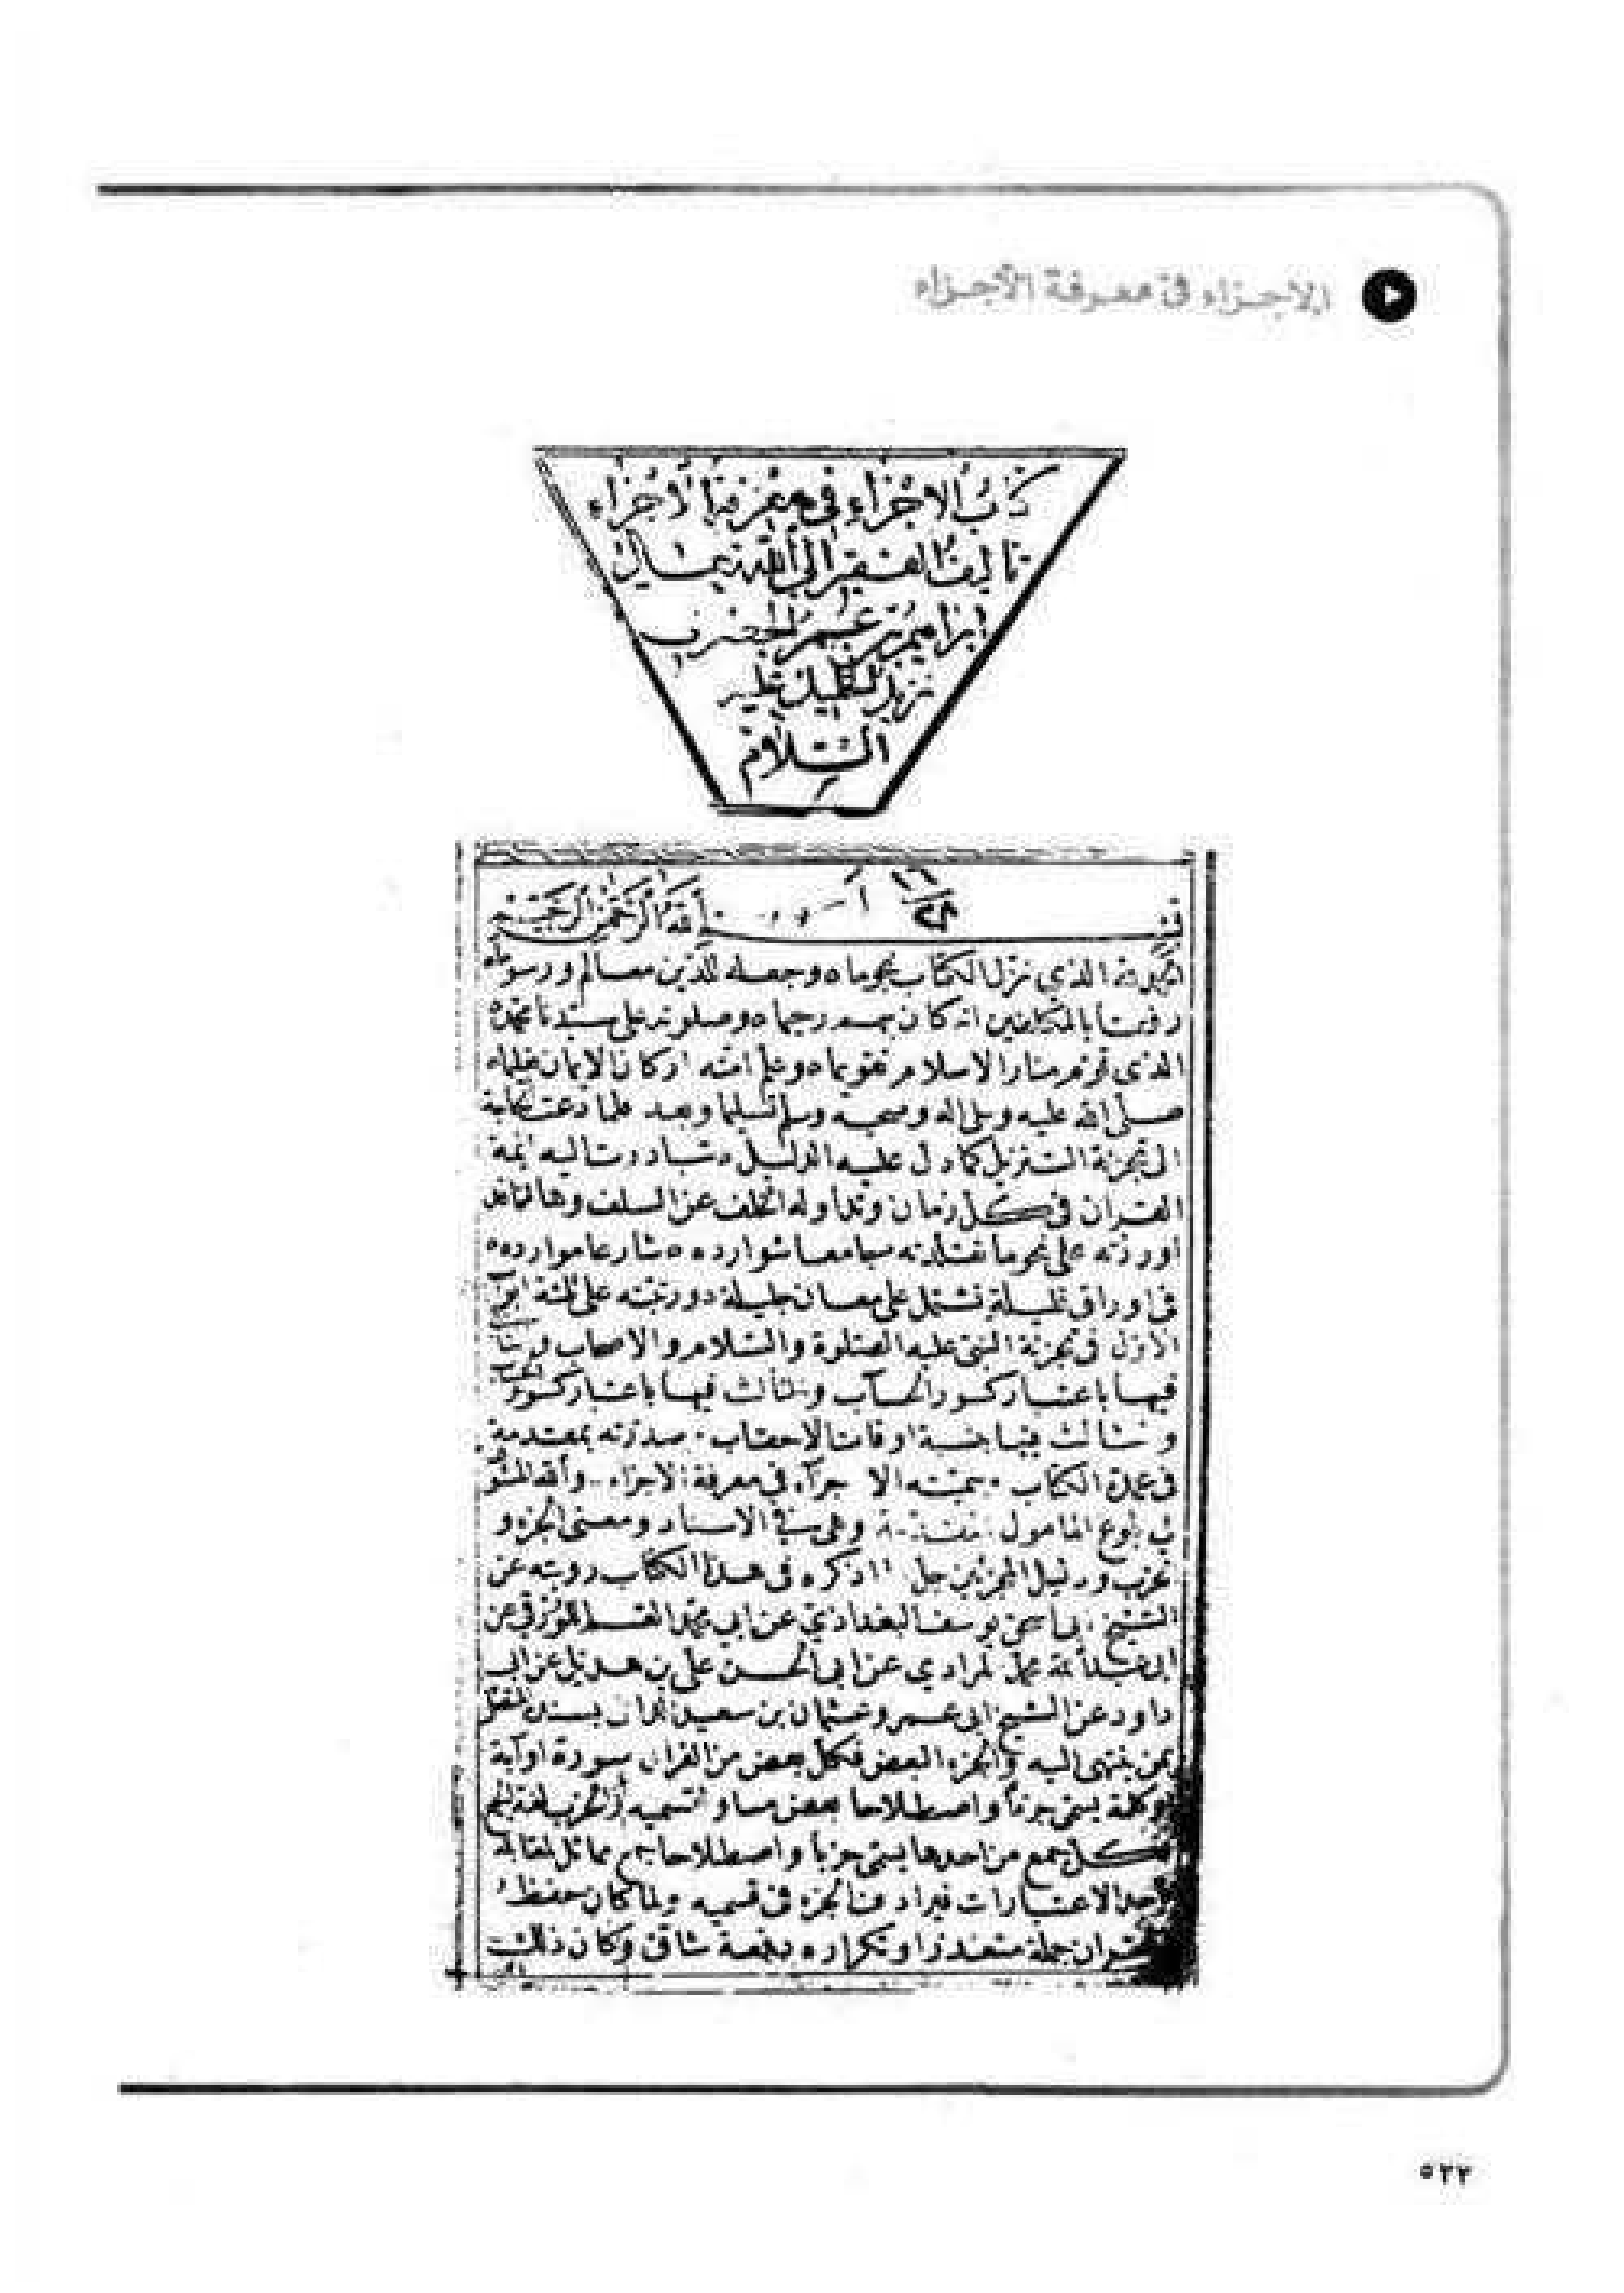 الاجزاء في معرفة الأجزاء
كتاب الاجزاء في معرفة الاجزاء
تاليف الفقير الى الله تعالى
ابراهيم بن عمر الجعبري
نزيل الخليل عليه
السلام
الله الرحمن الرحيم
الحمد لله الذي نزل الكتاب نجوما وجعله للدين معالم ورسوما
بالمكلفين انه كان بهم رحيما وصلوته على سيدنا محمد
الذى قوم منار الاسلام تقويما وعلم امته اركان الايمان تعليما
صلى الله عليه وعلى اله وصحبه وسلم تسليما وبعد فلما دعت الحاجة
الى تجزئة التنزيل كما دل عليه الدليل وتبادرت اليه ائمة
القران في كل زمان وتداوله الخلف عن السلف وها انا قد
اوردته على نحو ما نقلته جامعا شوارده شارعا موارده
في اوراق قليلة تشتمل على معان جليلة ورتبته على ثلثة
الاول في تجزئة النبي عليه الصلوة والسلام والاصحاب
فيها باعتبار كسور الحساب والثالث فيها باعتبار
اوقات الاحقاب صدرته بمقدمة
في عمدة الكتاب وسميته الاجزاء في معرفة الاجزاء والله
بلوغ المامول مقدمة وهي في الاسناد ومعنى الجزء و
ودليل المجزئين جل ما اذكره في هذا الكتاب رويته عن
الشيخ ابي اسحق يوسف البغدادي عن ابي محمد القسم عن
ابي عبد الله محمد المرادي عن ابي الحسن علي بن هذيل عن ابي
داود عن الشيخ ابي عمرو عثمان بن سعيد
بمن ينتهي اليه والجزء البعض فكل بعض من القران سورة او آية
او كلمة يسمى جزءا واصطلاحا بعض مساو لقسيمه والحزب لغة الجمع
فكل جمع من احدها يسمى حزبا واصطلاحا جمع مماثل لمقابله
الاعتبارات فيرادف الجزء في قسيمه ولما كان حفظ
القران جملة متعذرا وتكراره دفعة شاق وكان ذلك
٥٢٢